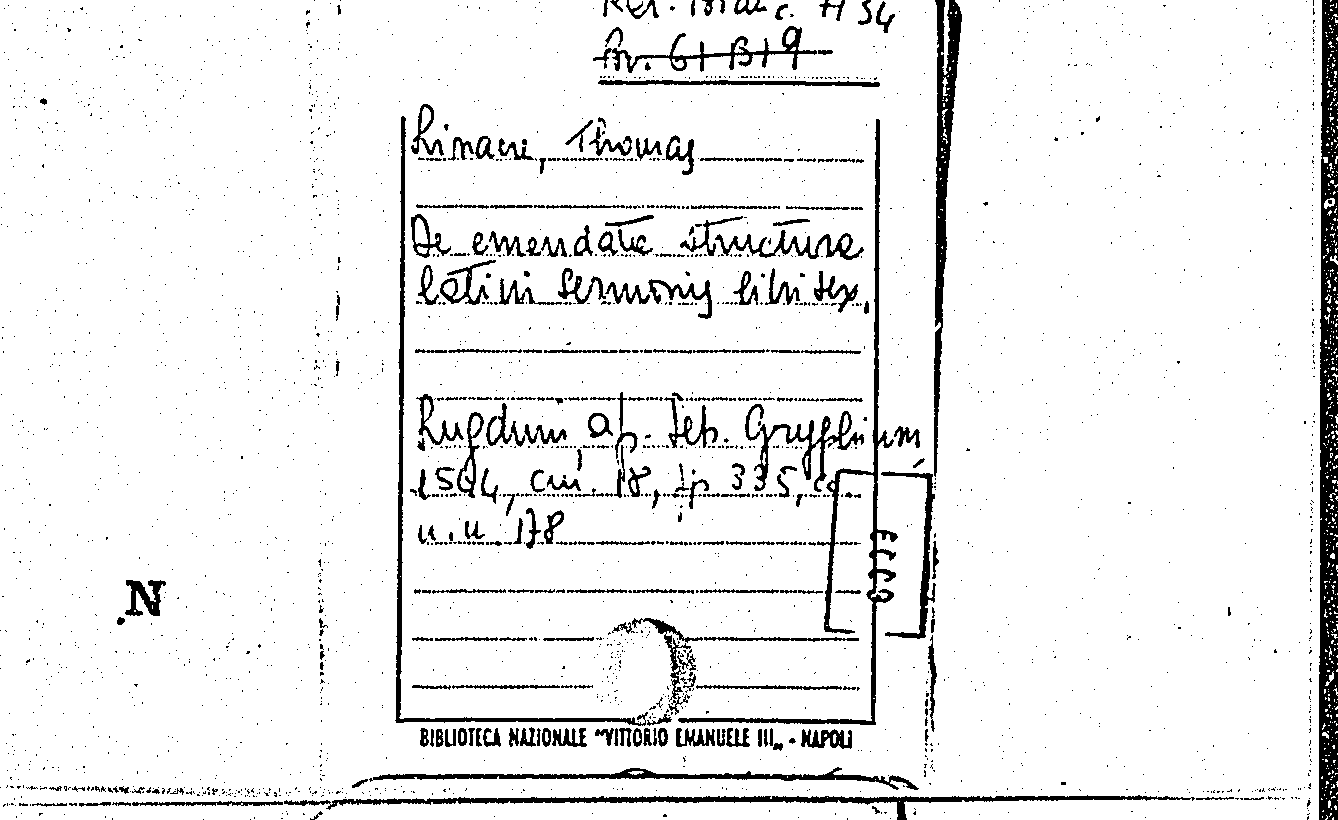 A 34
Av. 6 I B I 9
Linacre, Thomas
De emendata structura
latini sermonis libri sex.
Lugduni, ap. Seb. Gryphium,
1544, cm. 18, pp 335, cc.
n.n. 178
N
BIBLIOTECA NAZIONALE "VITTORIO EMANUELE III„ - NAPOLI